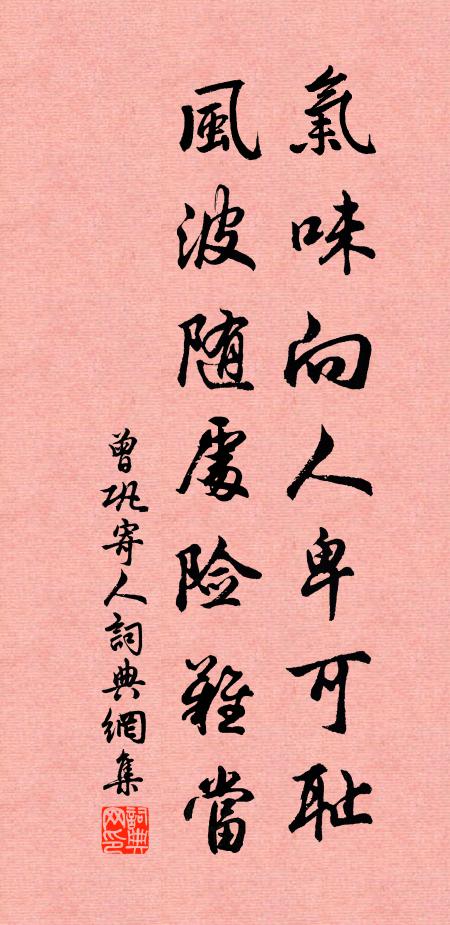 氣味向人卑可耻
風波随處險難當
曾巩寄人詞典網集
詞典网印